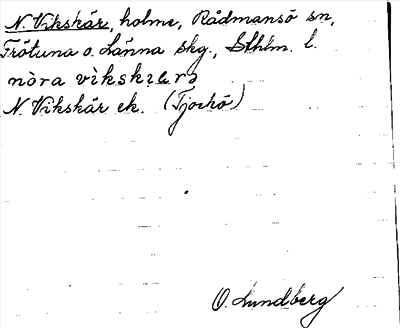 N. Vikskär, holme, Rådmansö sn,
Frötuna o. Länna skg., Sthlm. l.
nòra vìkskære
N. Vikskär ek. (Tjockö)
O. Lundberg